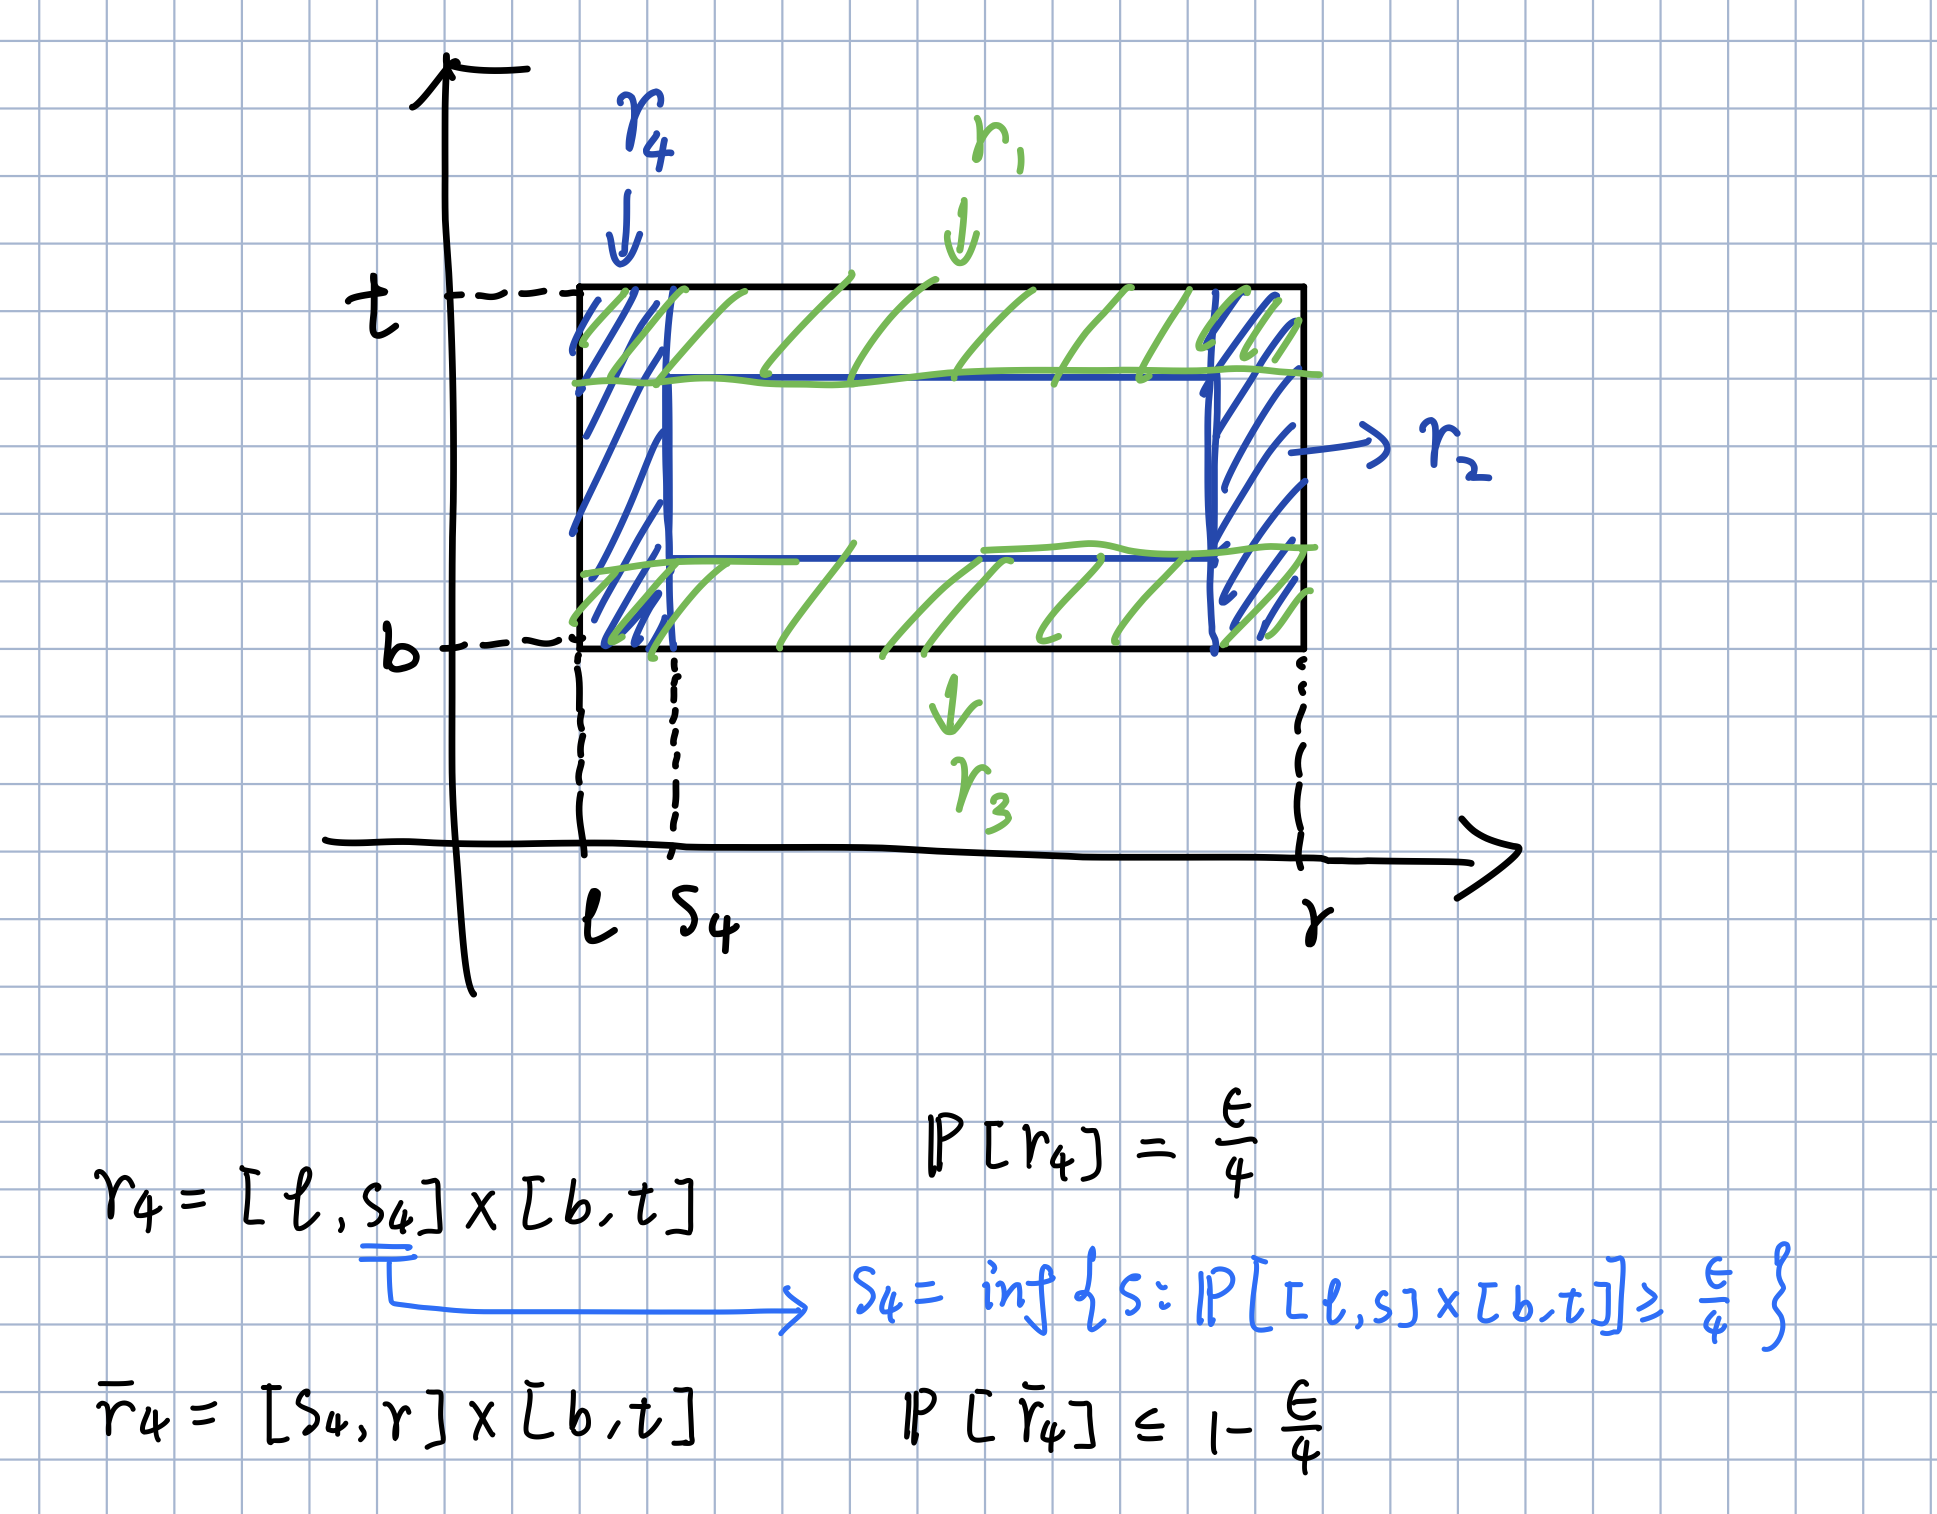 r₄
r₁
t
r₂
b
r₃
l s₄ r
ℙ[r₄] = ε/4
r₄ = [l, s₄] × [b, t]
s₄ = inf { s : ℙ[[l, s] × [b, t]] ≥ ε/4 }
r̄₄ = [s₄, r] × [b, t] ℙ[r̄₄] ≤ 1 - ε/4